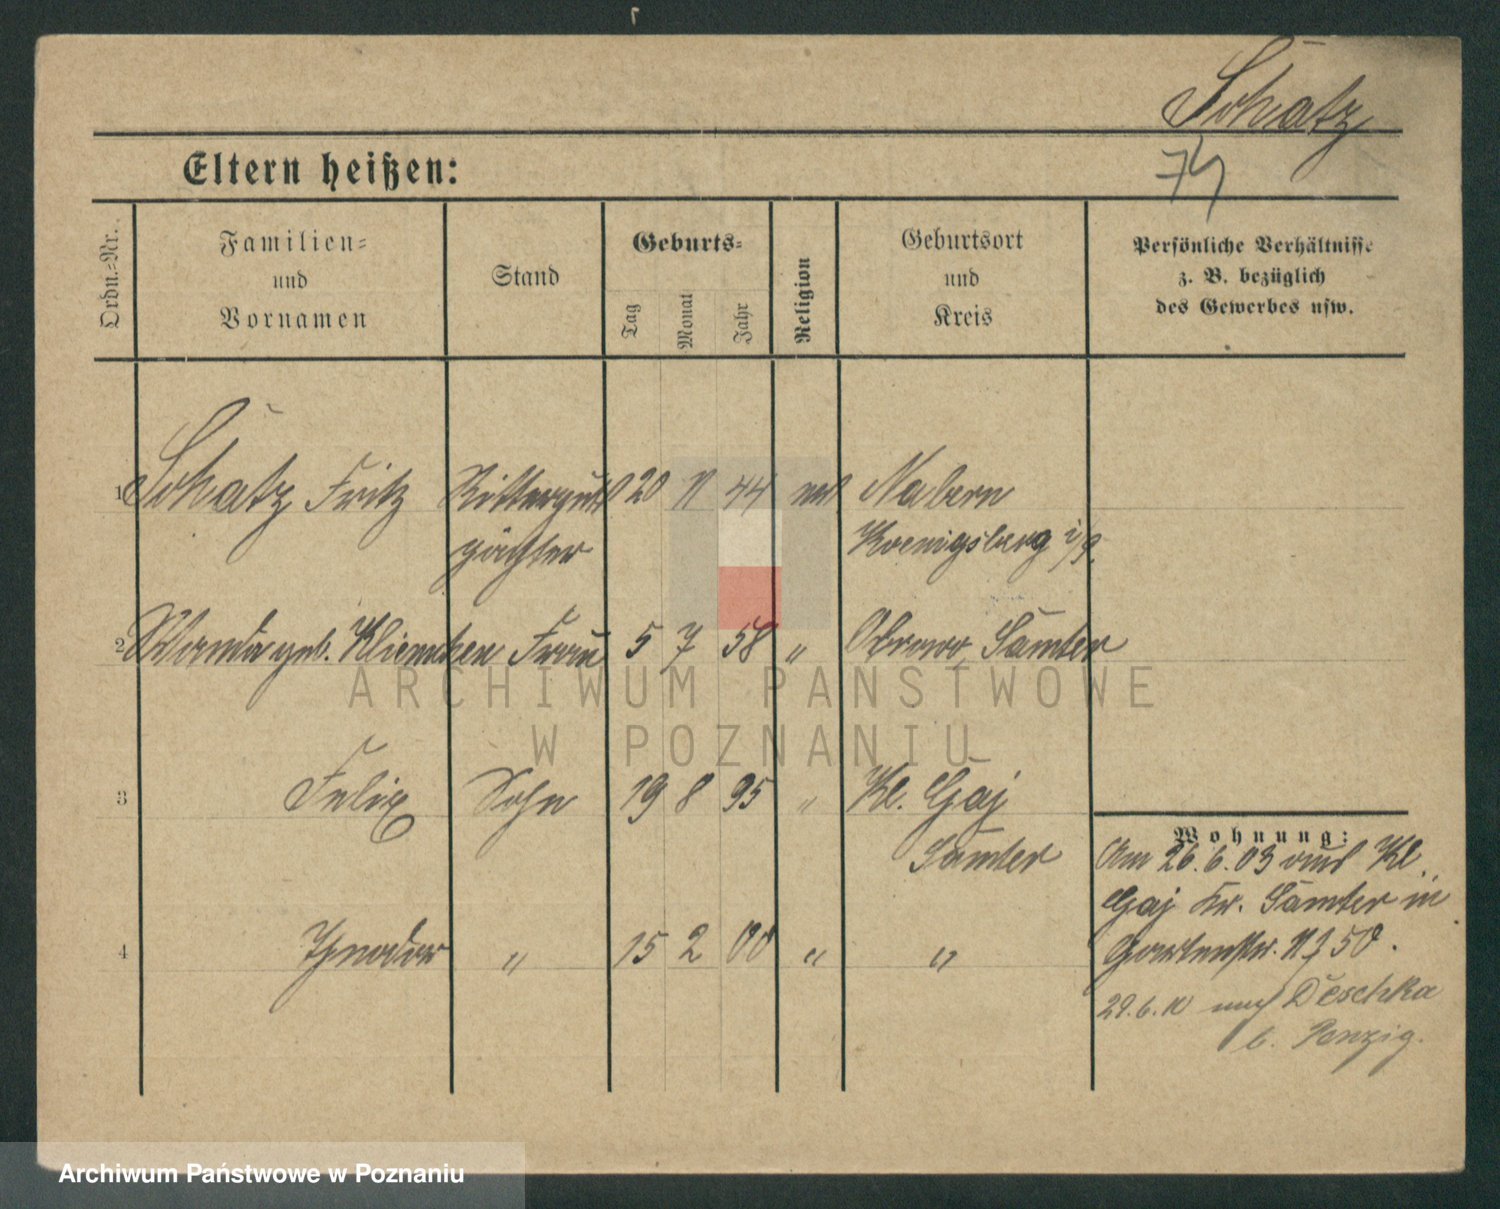 Schatz
74
Eltern heißen:
Ordn.-Nr.
Familien- und Vornamen
Stand
Geburts-
Tag
Monat
Jahr
Religion
Geburtsort und Kreis
Persönliche Verhältnisse
z. B. bezüglich
des Gewerbes usw.
1 Schatz Fritz Rittergut 20 11 44 ev Nabern
pächter Koenigsberg
2 Wanda geb. Frau 5 7 58 " Samter
3 Felix Sohn 19 8 95 " Kl. Gaj
Samter
4 Theodor " 15 2 00 " "
Wohnung:
Am 26.6.03 aus Kl.
Gaj Kr. Samter in
Gartenstr. 50.
29.6. nach Deschka
b. Penzig.
ARCHIWUM PAŃSTWOWE
W POZNANIU
Archiwum Państwowe w Poznaniu